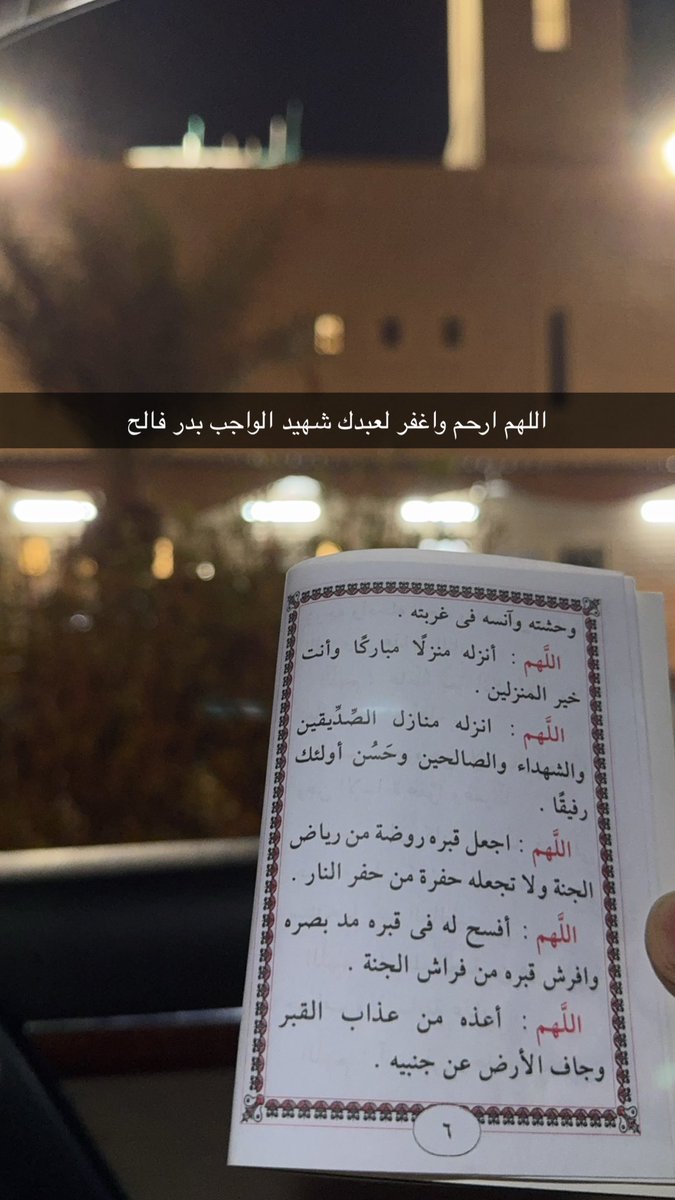 اللهم ارحم واغفر لعبدك شهيد الواجب بدر فالح
وحشته وآنسه فى غربته .
اللَّهم : أنزله منزلًا مباركًا وأنت
خير المنزلين .
اللَّهم : انزله منازل الصِّدِّيقين
والشهداء والصالحين وحَسُن أولئك
رفيقًا .
اللَّهم : اجعل قبره روضة من رياض
الجنة ولا تجعله حفرة من حفر النار .
اللَّهم : أفسح له فى قبره مد بصره
وافرش قبره من فراش الجنة .
اللَّهم : أعذه من عذاب القبر
وجاف الأرض عن جنبيه .
٦